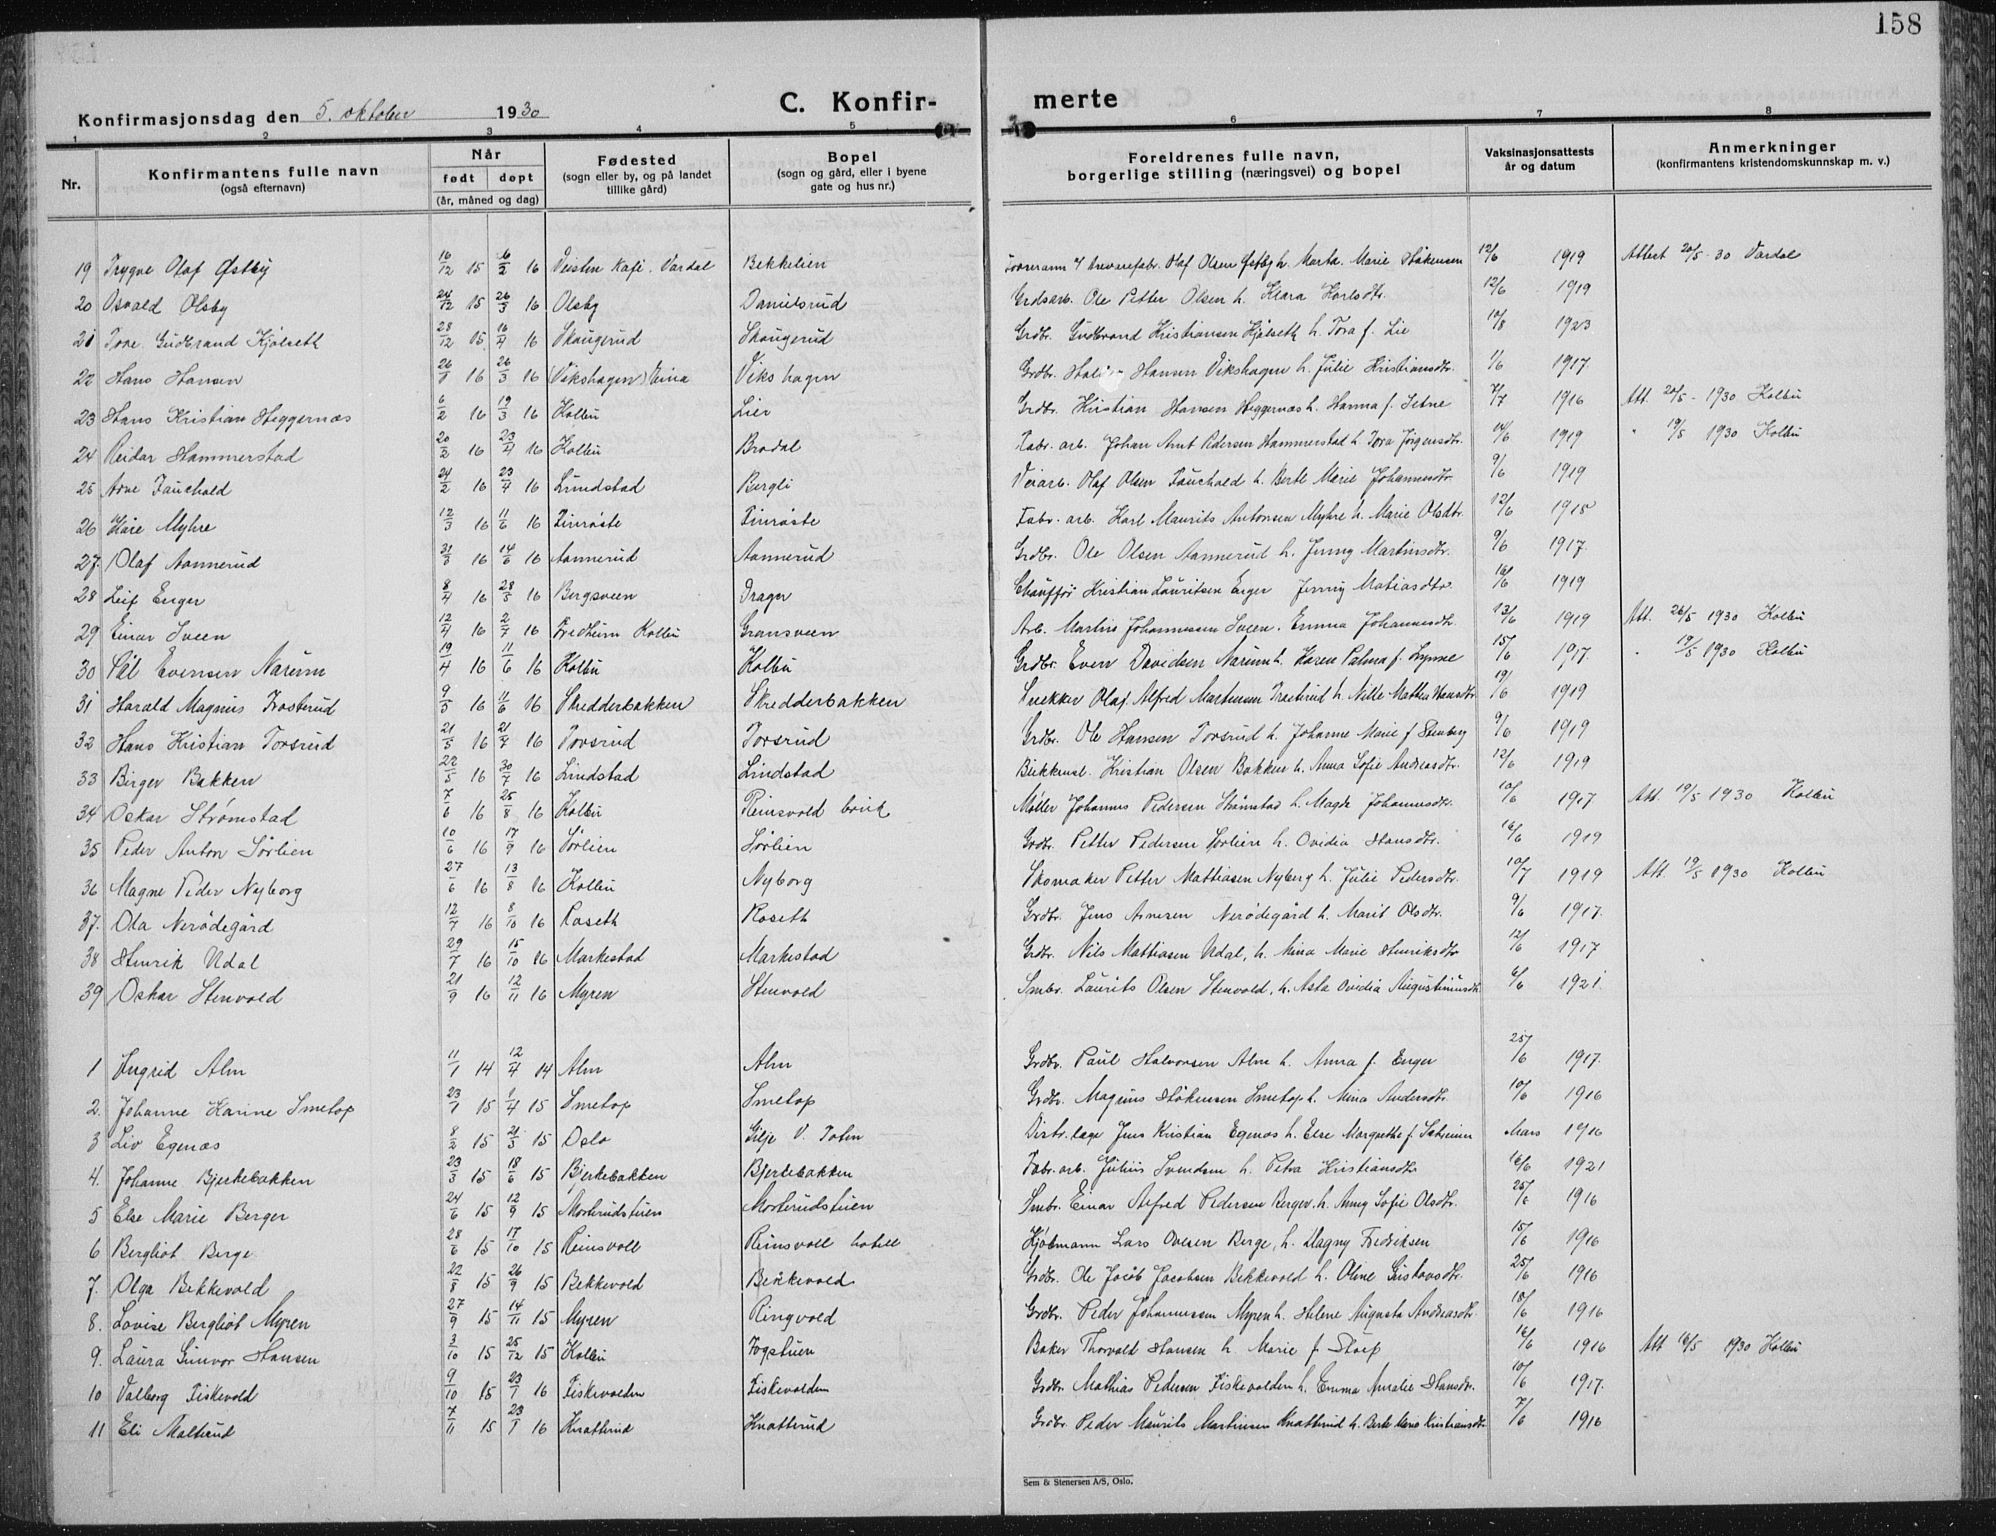 158
Konfirmasjonsdag den 5. oktober 1930
C. Konfir-
merte
1 2 3 4 5 6 7 8
Nr.
Konfirmantens fulle navn
(også efternavn)
Når
født døpt
(år, måned og dag)
Fødested
(sogn eller by, og på landet
tillike gård)
Bopel
(sogn og gård, eller i byene
gate og hus nr.)
Foreldrenes fulle navn,
borgerlige stilling (næringsvei) og bopel
Vaksinasjonsattests
år og datum
Anmerkninger
(konfirmantens kristendomskunnskap m. v.)
19 Trygve Olaf Østby 16/12 15 6/2 16 Kafé. Vardal Bekkelien Olaf Olsen Østby h. Marta Marie Håkensen 12/6 1919 Attest 20/5-30 Vardal
20 Osvald Olsby 24/12 15 26/3 16 Olsby Danielsrud Grdsarb. Ole Petter Olsen h. Klara Karlsdtr. 12/6 1919
21 Tore Gudbrand Kjølseth 28/12 15 16/4 16 Skaugerud Skaugerud Grdbr. Gudbrand Kristiansen Kjølseth h. Tora f. Lie 10/8 1923
22 Hans Hansen 26/1 16 26/3 16 (Vikshagen) Eina Vikshagen Grdbr. Hansen Vikshagen h. Julie Kristiansdtr. 1/6 1917.
23 Hans Kristian Heggernæs 6/2 16 19/3 16 Kolbu Lier Grdbr. Kristian Hansen Heggernæs h. Hanna f. Setne 7/7 1916 Att. 20/5-1930 Kolbu
24 Reidar Hammerstad 20/2 16 23/4 16 Kolbu Brodal Fabr. arb. Johan Arnt Pedersen Hammerstad h. Tora Jørgensdtr. 14/6 1919 " 19/5 1930 Kolbu
25 Arne Fauchald 24/2 16 23/4 16 Lundstad Bergli Veiarb. Olaf Olsen Fauchald h. Berte Marie Johannesdtr. 9/6 1919
26 Kåre Myhre 12/3 16 11/6 16 Finröste Finröste Fabr. arb. Karl Maurits Antonsen Myhre h. Marie Olsdtr. 12/6 1918
27. Olaf Aannerud 31/3 16 14/6 16 Aannerud Aannerud Grdbr. Ole Olsen Aannerud h. Jenny Martinsdtr. 9/6 1917.
28 Leif Enger 8/4 16 28/5 16 Bergsveen Drager Chauffør Kristian Lauritsen Enger Jenny Matiasdtr 16/6 1919
29 Einar Sveen 12/4 16 2/7 16 Fredheim Kolbu Gransveen Arb. Martin Johannessen Sveen. Emma Johannesdtr. 13/6 1919 Att. 26/5 1930 Kolbu
30 Pål Evensen Narum 19/4 16 11/6 16 Kolbu Kolbu Grdbr. Even Davidsen Narum h. Karen Palma f. Lynne 15/6 1917. " 19/5 1930 Kolbu
31 Harald Magnus Trosterud 9/5 16 11/6 16 Skredderbakken Skredderbakken Snekker Olaf Alfred Martinsen h. Nille Mathea Hansdtr 19/6 1919
32 Hans Kristian Torsrud 21/5 16 21/7 16 Torsrud Torsrud Grdbr. Ole Hansen Torsrud h. Johanne Marie f Stenberg 9/6 1919
33 Birger Bakken 22/5 16 30/7 16 Lindstad Lindstad Kristian Olsen Bakken h. Anna Sofie Andreasdtr. 12/6 1919
34 Oskar Strømstad 7/6 16 25/8 16 Kolbu Reinsvold bruk Møller Johannes Pedersen Strømstad h. Magda Johannesdtr. 10/6 1917 Att. 19/5 1930 Kolbu
35 Peder Anton Sørlien 10/6 16 17/9 16 Sørlien Sørlien Grdbr. Petter Pedersen Sørlien h. Ovidia Hansdtr. 16/6 1919
36 Magne Peder Nyborg 27/6 16 13/8 16 Kolbu Nyborg Skomaker Petter Mattiasen Nyborg h. Julie Pedersdtr. 10/7 1919 Att. 19/5 1930 Kolbu
37. Ola Nerødegård 12/7 16 8/10 16 Roseth Roseth Grdbr. Jens Arnesen Nerødegård h. Marit Olsdtr. 9/6 1917.
38 Henrik Udal 29/7 16 15/10 16 Markestad Markestad Grdbr. Nils Mattiasen Udal, h. Mina Marie Henriksdtr 12/6 1917
39 Oskar Stenvold 21/9 16 12/11 16 Myren Stenvold Smbr. Laurits Olsen Stenvold, h. Asta Ovidia Augustinusdtr 6/6 1921.
1 Ingrid Alm 11/1 14 12/4 14 Alm Alm Grdbr. Paul Halvorsen Alm h. Anna f. Enger 25/6 1917.
2. Johanne Karine Smetop 23/1 15 1/4 15 Smetop Smetop Grdbr. Magnus Håkensen Smetop h. Mina Andersdtr 10/6 1916
3 Liv Egenæs 8/2 15 21/3 15 Oslo Gilje V. Toten Distr. læge Jens Kristian Egenæs h. Else Margrethe f. Mars 1916
4. Johanne Bjerkebakken 23/3 15 18/6 15 Bjerkebakken Bjerkebakken Fabr. arb. Julius Svendsen h. Petra Kristiansdtr 16/6 1921
5 Else Marie Berger 24/6 15 12/9 15 Morterudstuen Morterudstuen Smbr. Einar Alfred Pedersen Berger, h. Anny Sofie Olsdtr. 25/6 1916
6 Bergliot Berge 28/6 15 17/10 15 Reinsvoll Reinsvoll hotell Kjøbmann Lars Ovesen Berge, h. Dagny Fredriksen 15/6 1916
7. Olga Bekkevold 22/8 15 26/9 15 Bekkevold Bekkevold Grdbr. Ole Jacob Jacobsen Bekkevold h. Oline Gustavsdtr. 25/6 1916
8. Lovise Bergliot Myren 27/9 15 14/11 15 Myren Ringvold Grdbr. Peder Johannessen Myren h. Helene Augusta Andreasdtr 18/6 1916
9. Laura Gunvor Hansen 3/10 15 25/12 15 Kolbu Fogstuen Baker Thorvald Hansen h. Marie f. Støep 16/6 1916 Att 16/5 1930 Kolbu
10 Valborg Fiskevold 9/10 15 23/1 16 Fiskevolden Fiskevolden Grdbr. Mathias Pedersen Fiskevolden h. Emma Amalie Hansdtr. 10/6 1917.
11 Eli Maltrud 7/11 15 23/1 16 Knatterud Knatterud Grdbr. Peder Maurits Martinsen Knatterud h. Berte Marie Kristiansdtr. 7/6 1916
Sem & Stenersen A/S, Oslo.